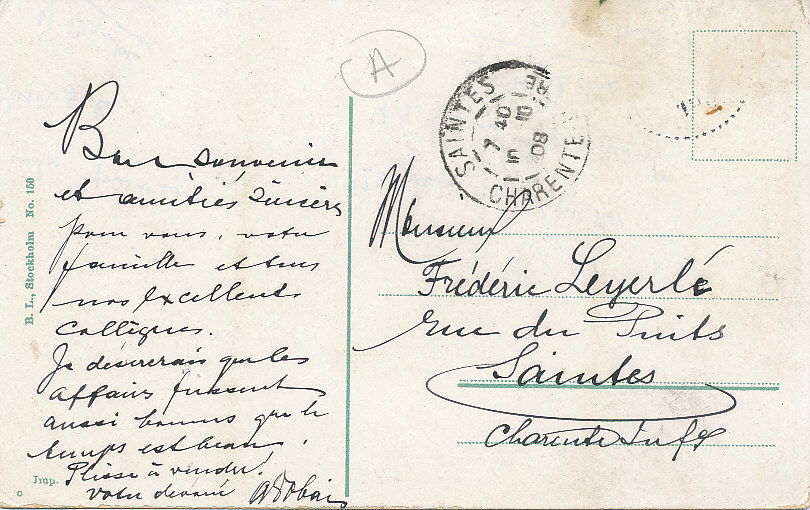 A
Bon souvenir
et amitiés sincères
pour vous, votre
famille et tous
nos excellents
collègues.
Je désirerais que les
affaires fussent
aussi bonnes que le
temps est beau.
à vendre!
votre dévoué
B. L., Stockholm No. 150
Imp.
c
SAINTES
CHARENTE
7 40
15 5 08
Monsieur
Frédéric Leyerlé
rue du Puits
Saintes
Charente Infre